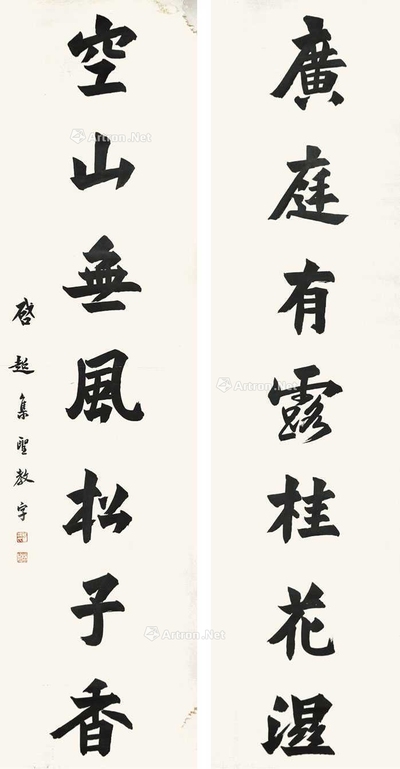 廣庭有露桂花濕
空山無風松子香
啓超集聖教字
Artron.Net
Artron.Net
Artron.Net
Artron.Net